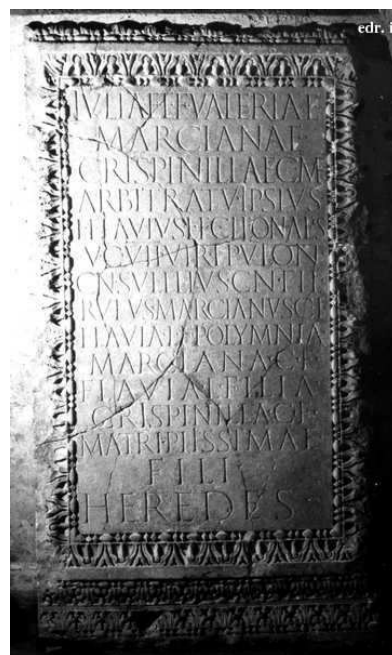 IVLIAE L F VALERIAE
MARCIANAE
CRISPINILLAE C M
ARBITRATV IPSIVS
FLAVIVS
V C VII VIR EPVLON
CN SVELLIVS CN FIL
RVFVS MARCIANVS C I
FLAVIA POLYMNIA
MARCIANA C F
FLAVIA FILIA
CRISPINILLA C F
MATRI PIISSIMAE
FILI
HEREDES
edr. i